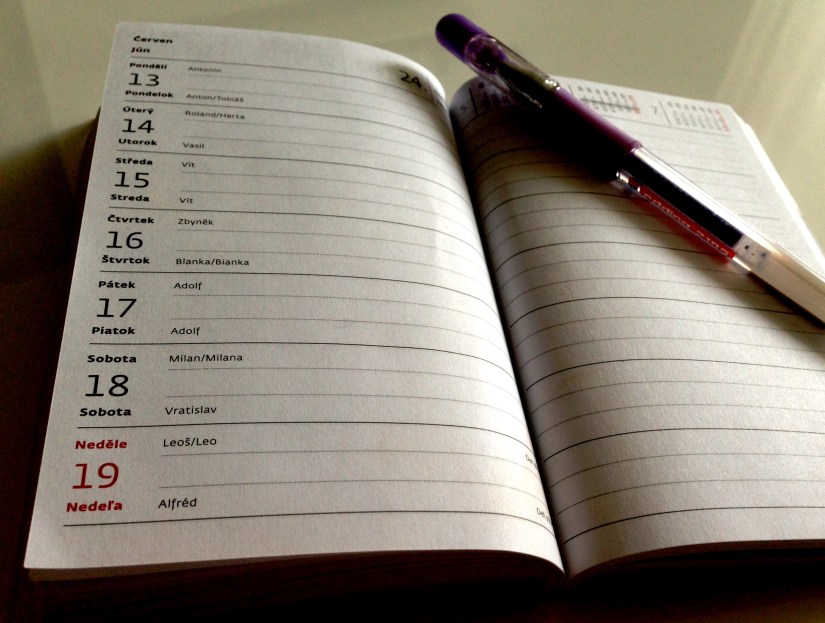 Červen
Jún
24.
Pondělí
Antonín
13
Pondelok
Anton/Tobiáš
Úterý
Roland/Herta
14
Utorok
Vasil
Středa
Vít
15
Streda
Vít
Čtvrtek
Zbyněk
16
Štvrtok
Blanka/Bianka
Pátek
Adolf
17
Piatok
Adolf
Sobota
Milan/Milana
18
Sobota
Vratislav
Neděle
Leoš/Leo
19
Nedeľa
Alfréd
7